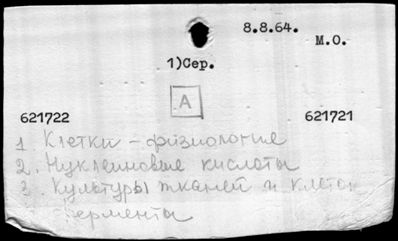 8.8.64.
М.О.
1)Сер.
А
621722
621721
1 Клетки - физиология
2. Нуклеиновые кислоты
3 Культуры тканей и клеток
Ферменты